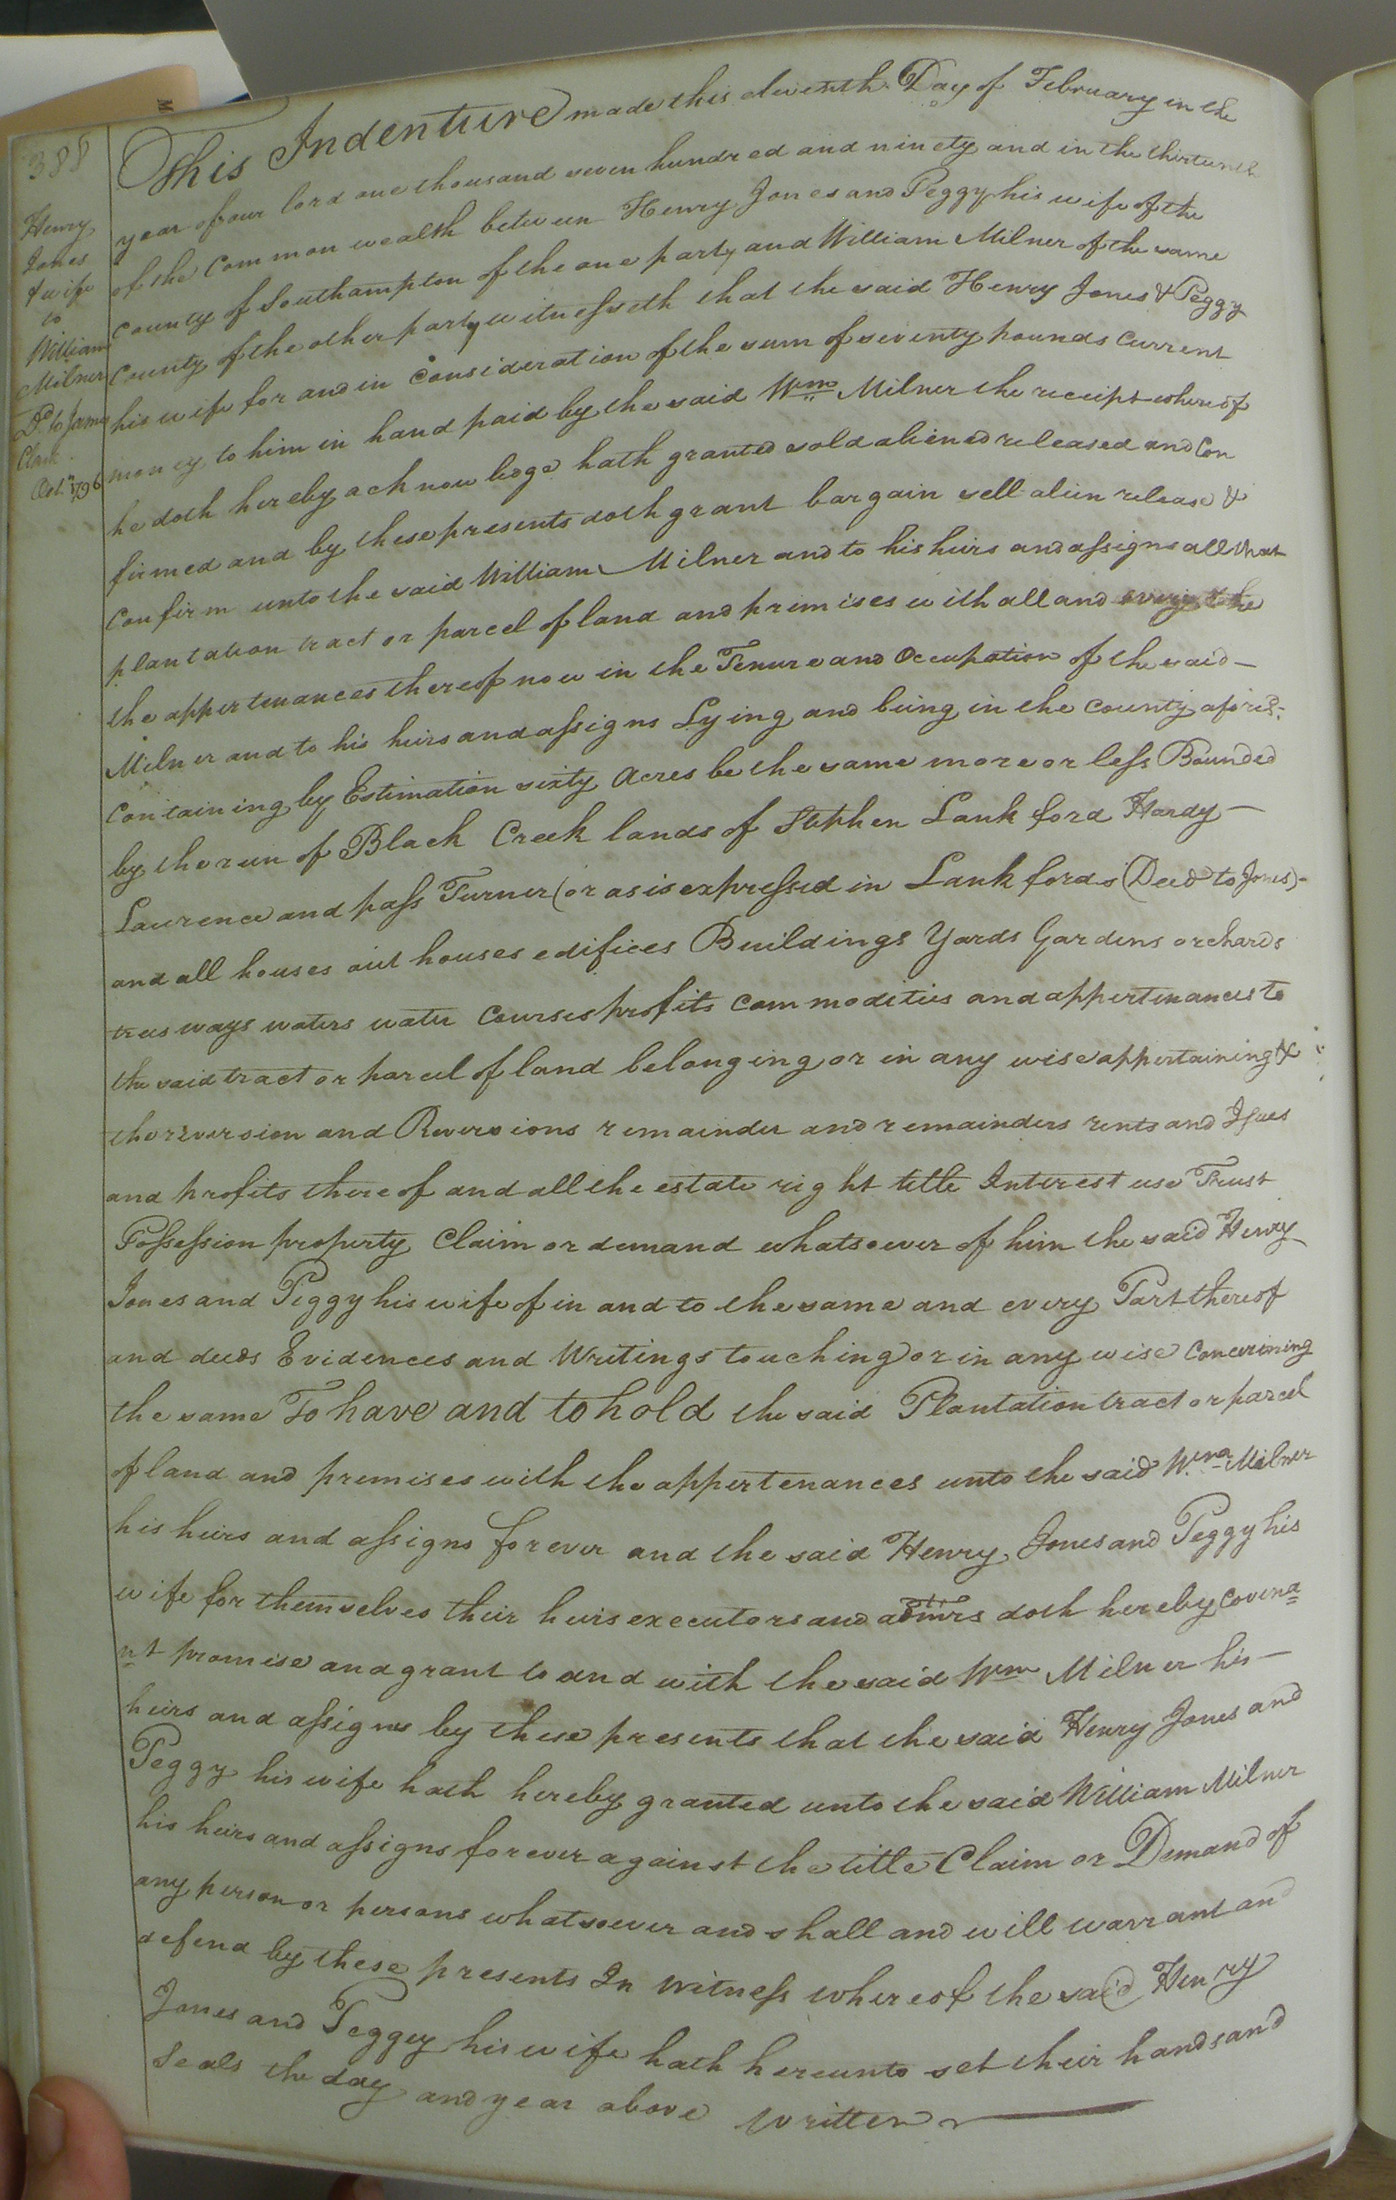 388
Henry
Jones
& wife
to
William
Milner
Dd. to James
Clark
Octr. 1796
This Indenture made this eleventh Day of February in the
year of our lord one thousand seven hundred and ninety and in the thirteenth
of the Common wealth between Henry Jones and Peggy his wife of the
County of Southampton of the one party and William Milner of the same
County of the other party witnesseth that the said Henry Jones & Peggy
his wife for and in Consideration of the sum of seventy pounds Current
money to him in hand paid by the said Wm. Milner the receipt whereof
he doth hereby acknowledge hath granted sold aliened released and Con
firmed and by these presents doth grant bargain sell alien release &
Confirm unto the said William Milner and to his heirs and assigns all that
plantation tract or parcel of land and premises with all and every the
the appertenances thereof now in the Tenure and Occupation of the said
Milner and to his heirs and assigns Lying and being in the County aforesd.
Containing by Estimation sixty Acres be the same more or less Bounded
by the run of Black Creek lands of Stephen Lankford Hardy
Lawrence and pass Turner (or as is expressed in Lankfords (Deed to Jones)
and all houses out houses edifices Buildings Yards Gardens orchards
trees ways waters water Courses profits Commodities and appertenances to
the said tract or parcel of land belonging or in any wise appertaining &
the reversion and Reversions remainder and remainders rents and Issues
and profits thereof and all the estate right title Interest use Trust
Possession property Claim or demand whatsoever of him the said Henry
Jones and Peggy his wife of in and to the same and every Part thereof
and deeds Evidences and Writings touching or in any wise Concerining
the same To have and to hold the said Plantation tract or parcel
of land and premises with the appertenances unto the said Wm. Milner
his heirs and assigns forever and the said Henry Jones and Peggy his
wife for themselves their heirs executors and admrs doth hereby Covena
nt promise and grant to and with the said Wm Milner his
heirs and assigns by these presents that the said Henry Jones and
Peggy his wife hath hereby granted unto the said William Milner
his heirs and assigns forever against the title Claim or Demand of
any person or persons whatsoever and shall and will warrant and
defend by these presents In witness whereof the said Henry
Jones and Peggey his wife hath hereunto set their hands and
Seals the day and year above written